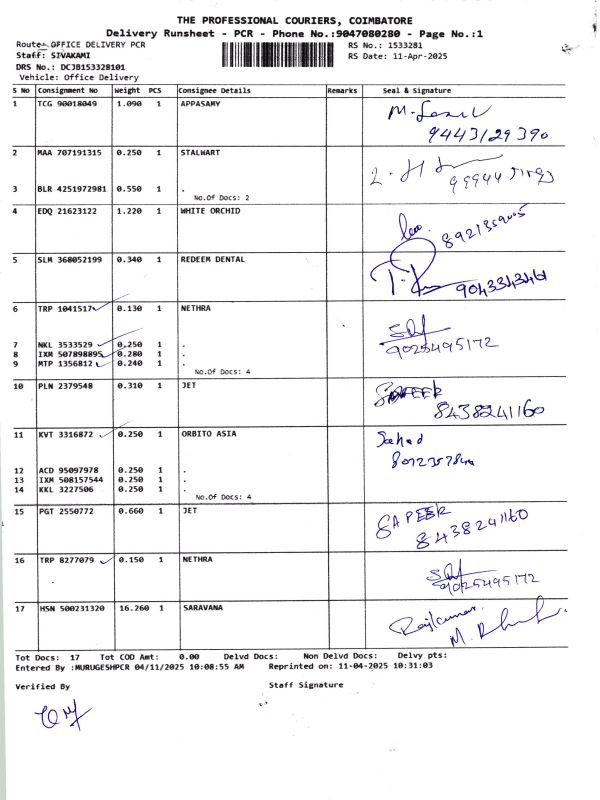 THE PROFESSIONAL COURIERS, COIMBATORE
Delivery Runsheet - PCR - Phone No.:9047080280 - Page No.:1
Route: OFFICE DELIVERY PCR RS No.: 1533281
Staff: SIVAKAMI RS Date: 11-Apr-2025
DRS No.: DCJB153328101
Vehicle: Office Delivery
S No Consignment No Weight PCS Consignee Details Remarks Seal & Signature
1 TCG 90018049 1.090 1 APPASAMY
9443129390
2 MAA 707191315 0.250 1 STALWART
3 BLR 4251972981 0.550 1 .
No.Of Docs: 2
4 EDQ 21623122 1.220 1 WHITE ORCHID
8921359005
5 SLM 368052199 0.340 1 REDEEM DENTAL
9043343461
6 TRP 1041517 0.130 1 NETHRA
9025495172
7 NKL 3533529 0.250 1 .
8 IXM 507898895 0.280 1 .
9 MTP 1356812 0.240 1 .
No.Of Docs: 4
10 PLN 2379548 0.310 1 JET SAPEER
8438241160
11 KVT 3316872 0.250 1 ORBITO ASIA Sahad
12 ACD 95097978 0.250 1 .
13 IXM 508157544 0.250 1 .
14 KKL 3227506 0.250 1 .
No.Of Docs: 4
15 PGT 2550772 0.660 1 JET SAPEER
8438241160
16 TRP 8277079 0.150 1 NETHRA
9025495172
17 HSN 500231320 16.260 1 SARAVANA Rajkumar.
Tot Docs: 17 Tot COD Amt: 0.00 Delvd Docs: Non Delvd Docs: Delvy pts:
Entered By :MURUGESHPCR 04/11/2025 10:08:55 AM Reprinted on: 11-04-2025 10:31:03
Verified By Staff Signature